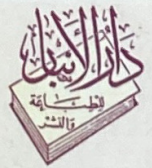 دار الأنبار
للطباعة
والنشر